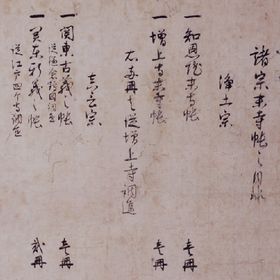 諸宗末寺帳之目録
浄土宗
一知恩院末寺帳 壱冊
一増上寺末寺帳 壱冊
右両冊者従増上寺調進
真言宗
一関東古義之帳 壱冊
一関東新義之帳 弐冊
従江戸四个寺調進